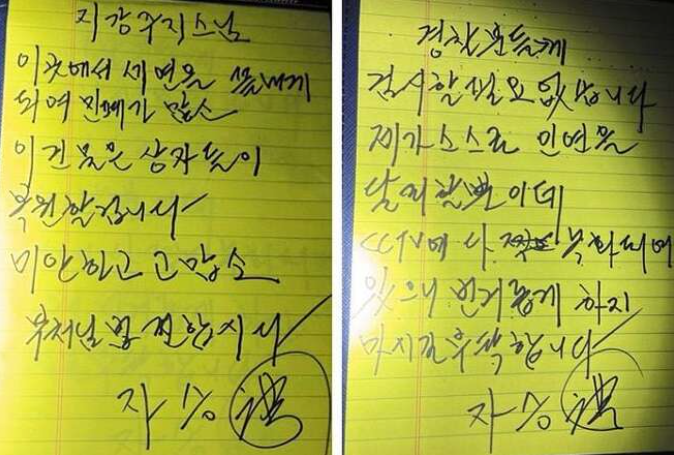 지강 주지스님
이곳에서 세연을 끝내게
되어 민폐가 많소
이 건물은 상좌들이
복원할겁니다
미안하고 고맙소
부처님법 전합시다
자승
경찰분들께
검시할 필요 없습니다
제가 스스로 인연을
달리할 뿐인데
CCTV에 다 녹화되어
있으니 번거롭게 하지
마시길 부탁합니다
자승